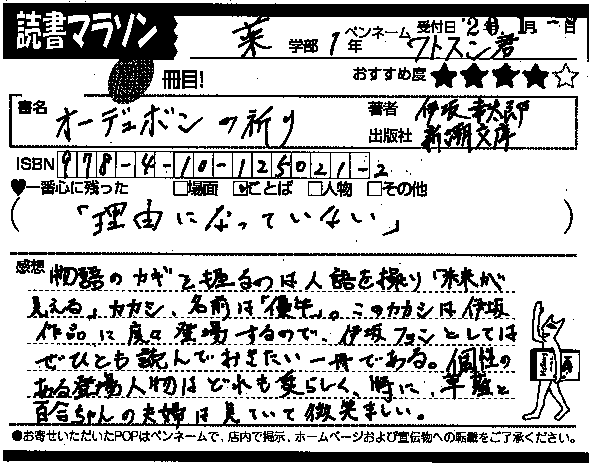 読書マラソン
薬 学部 1年 ペンネーム ワトスン君 受付日
冊目! おすすめ度 ★★★★☆
書名 オーデュボンの祈り 著者 伊坂幸太郎
出版社 新潮文庫
ISBN 978-4-10-125021-2
♥一番心に残った □場面 ☑ことば □人物 □その他
(「理由になっていない」)
感想 物語のカギを握るのは人語を操り「未来が
見える」カカシ、名前は「優午」。このカカシは伊坂
作品に度々登場するので、伊坂ファンとしては
ぜひとも読んでおきたい一冊である。個性の
ある登場人物はどれも愛らしく、特に、草薙と
百合ちゃんの夫婦は見ていて微笑ましい。
●お寄せいただいたPOPはペンネームで、店内で掲示、ホームページおよび宣伝物への転載をご了承ください。